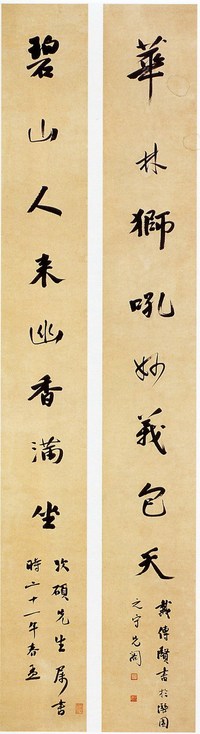 華林獅吼妙義包天
戴傳賢書於渤園
之守先閣
碧山人來幽香滿坐
次碩先生屬書
時二十一年春盡